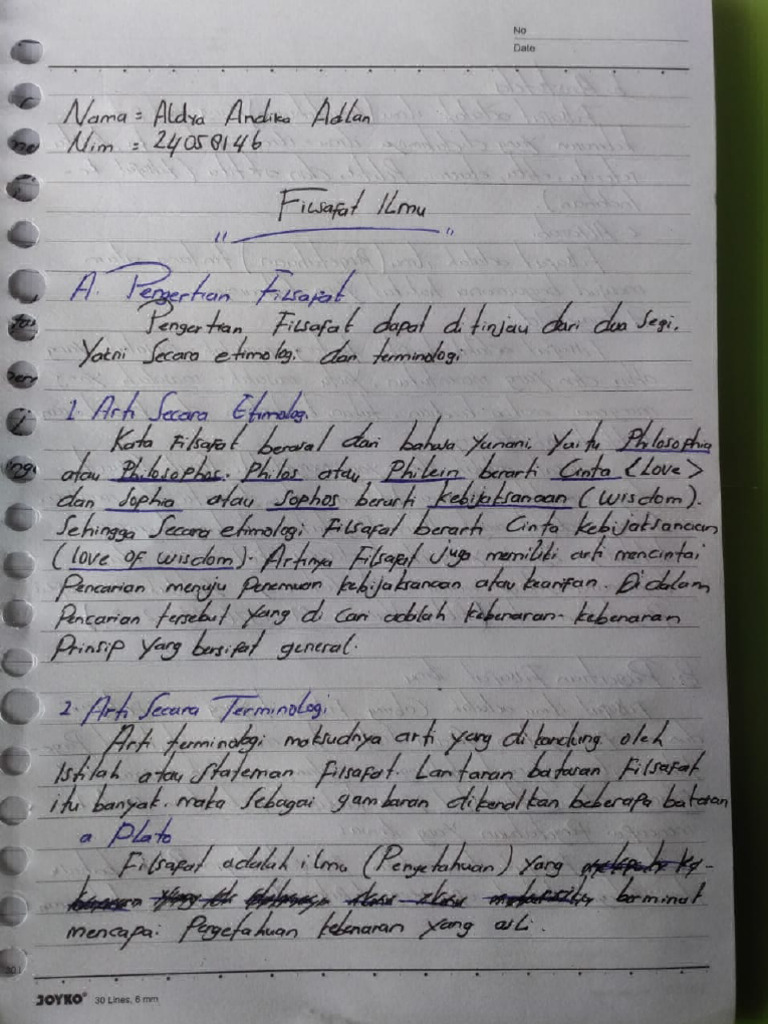 No
Date
Nama = Aldya Andika Adlan
Nim = 24050146
Filsafat Ilmu
" "
A. Pengertian Filsafat
Pengertian Filsafat dapat ditinjau dari dua segi.
Yakni Secara etimologi dan terminologi
1. Arti Secara Etimologi
Kata Filsafat berasal dari bahasa Yunani, Yaitu Philosophia
atau Philosophos. Philos atau Philein berarti Cinta (Love)
dan Sophia atau Sophos berarti kebijaksanaan (Wisdom).
Sehingga Secara etimologi Filsafat berarti Cinta kebijaksanaan
(love of wisdom). Artinya Filsafat Juga memiliki arti mencintai
Pencarian menuju Penemuan kebijaksanaan atau kearifan. Di dalam
Pencarian tersebut yang di Cari adalah kebenaran-kebenaran
Prinsip Yang bersifat general.
2. Arti Secara Terminologi
Arti terminologi maksudnya arti yang dikandung oleh
Istilah atau Stateman Filsafat. Lantaran batasan Filsafat
itu banyak. maka Sebagai gambaran dikenalkan beberapa batasan
a Plato
Filsafat adalah ilmu (Pengetahuan) Yang
berminat
mencapai Pengetahuan kebenaran yang asli.
JOYKO 30 Lines, 6 mm